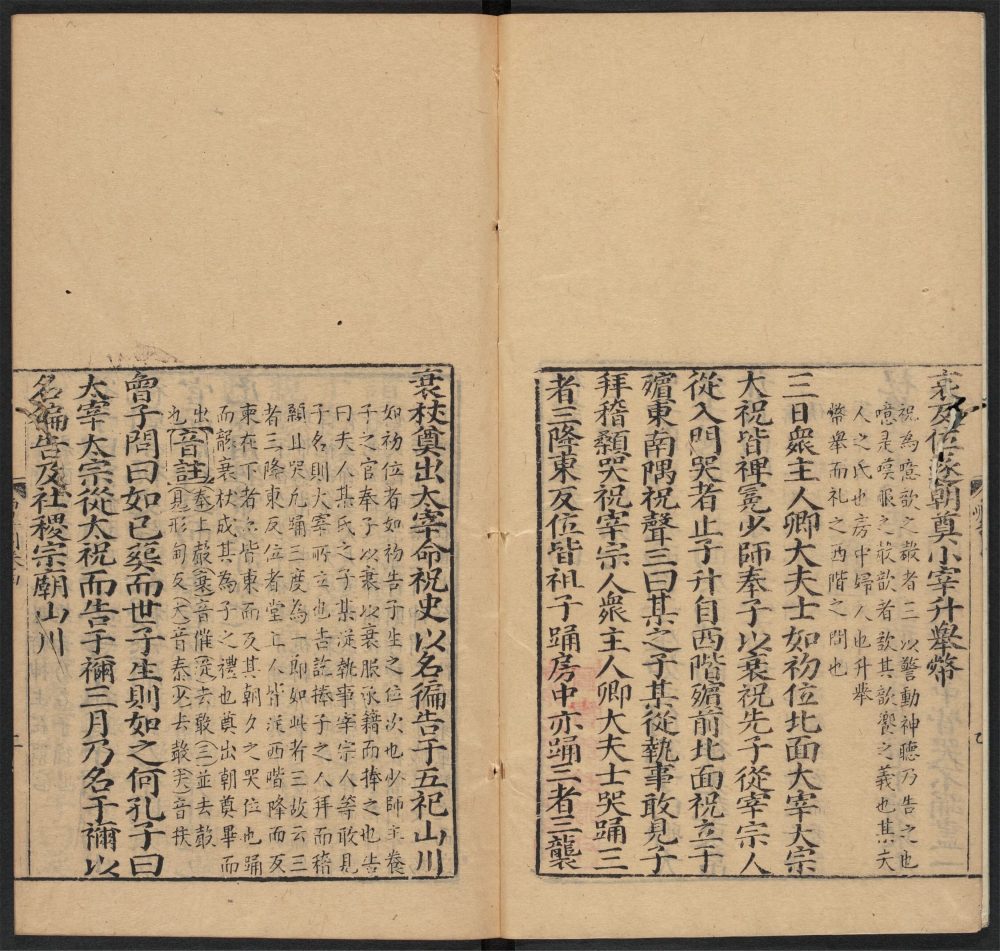 哀反位遂朝奠小宰升舉幣
祝為噫歆之聲者三以警動神聽乃告之也
噫是嘆恨之聲歆者歆其歆饗之義也其夫
人之氏也房中婦人也升舉
幣舉而礼之西階之間也
三日衆主人卿大夫士如初位北面大宰大宗
大祝皆裨冕少師奉子以衰祝先子從宰宗人
從入門哭者止子升自西階殯前北面祝立于
殯東南隅祝聲三曰某之子某從執事敢見子
拜稽顙哭祝宰宗人衆主人卿大夫士哭踊三
者三降東反位皆袒子踊房中亦踊三者三襲
衰杖奠出太宰命祝史以名徧告于五祀山川
如初位者如初告子生之位次也少師主養
子之官奉子以衰以衰服承藉而捧之也告
曰夫人某氏之子某從執事宰宗人等敢見
子名則大宰所立也告訖捧子之人拜而稽
顙且哭凢踊三度為一節如此者三故云三
者三降東反位者堂上人皆從西階降而反
東在下者亦皆東而反其朝夕之哭位也踊
而襲衰杖成其為子之禮也奠出朝奠畢而
出也
音註 奉上聲衰音催從去敢三並去聲
見形甸反大音泰少去聲夫音扶
曾子問曰如已葬而世子生則如之何孔子曰
太宰太宗從太祝而告于禰三月乃名于禰以
名徧告及社稷宗廟山川